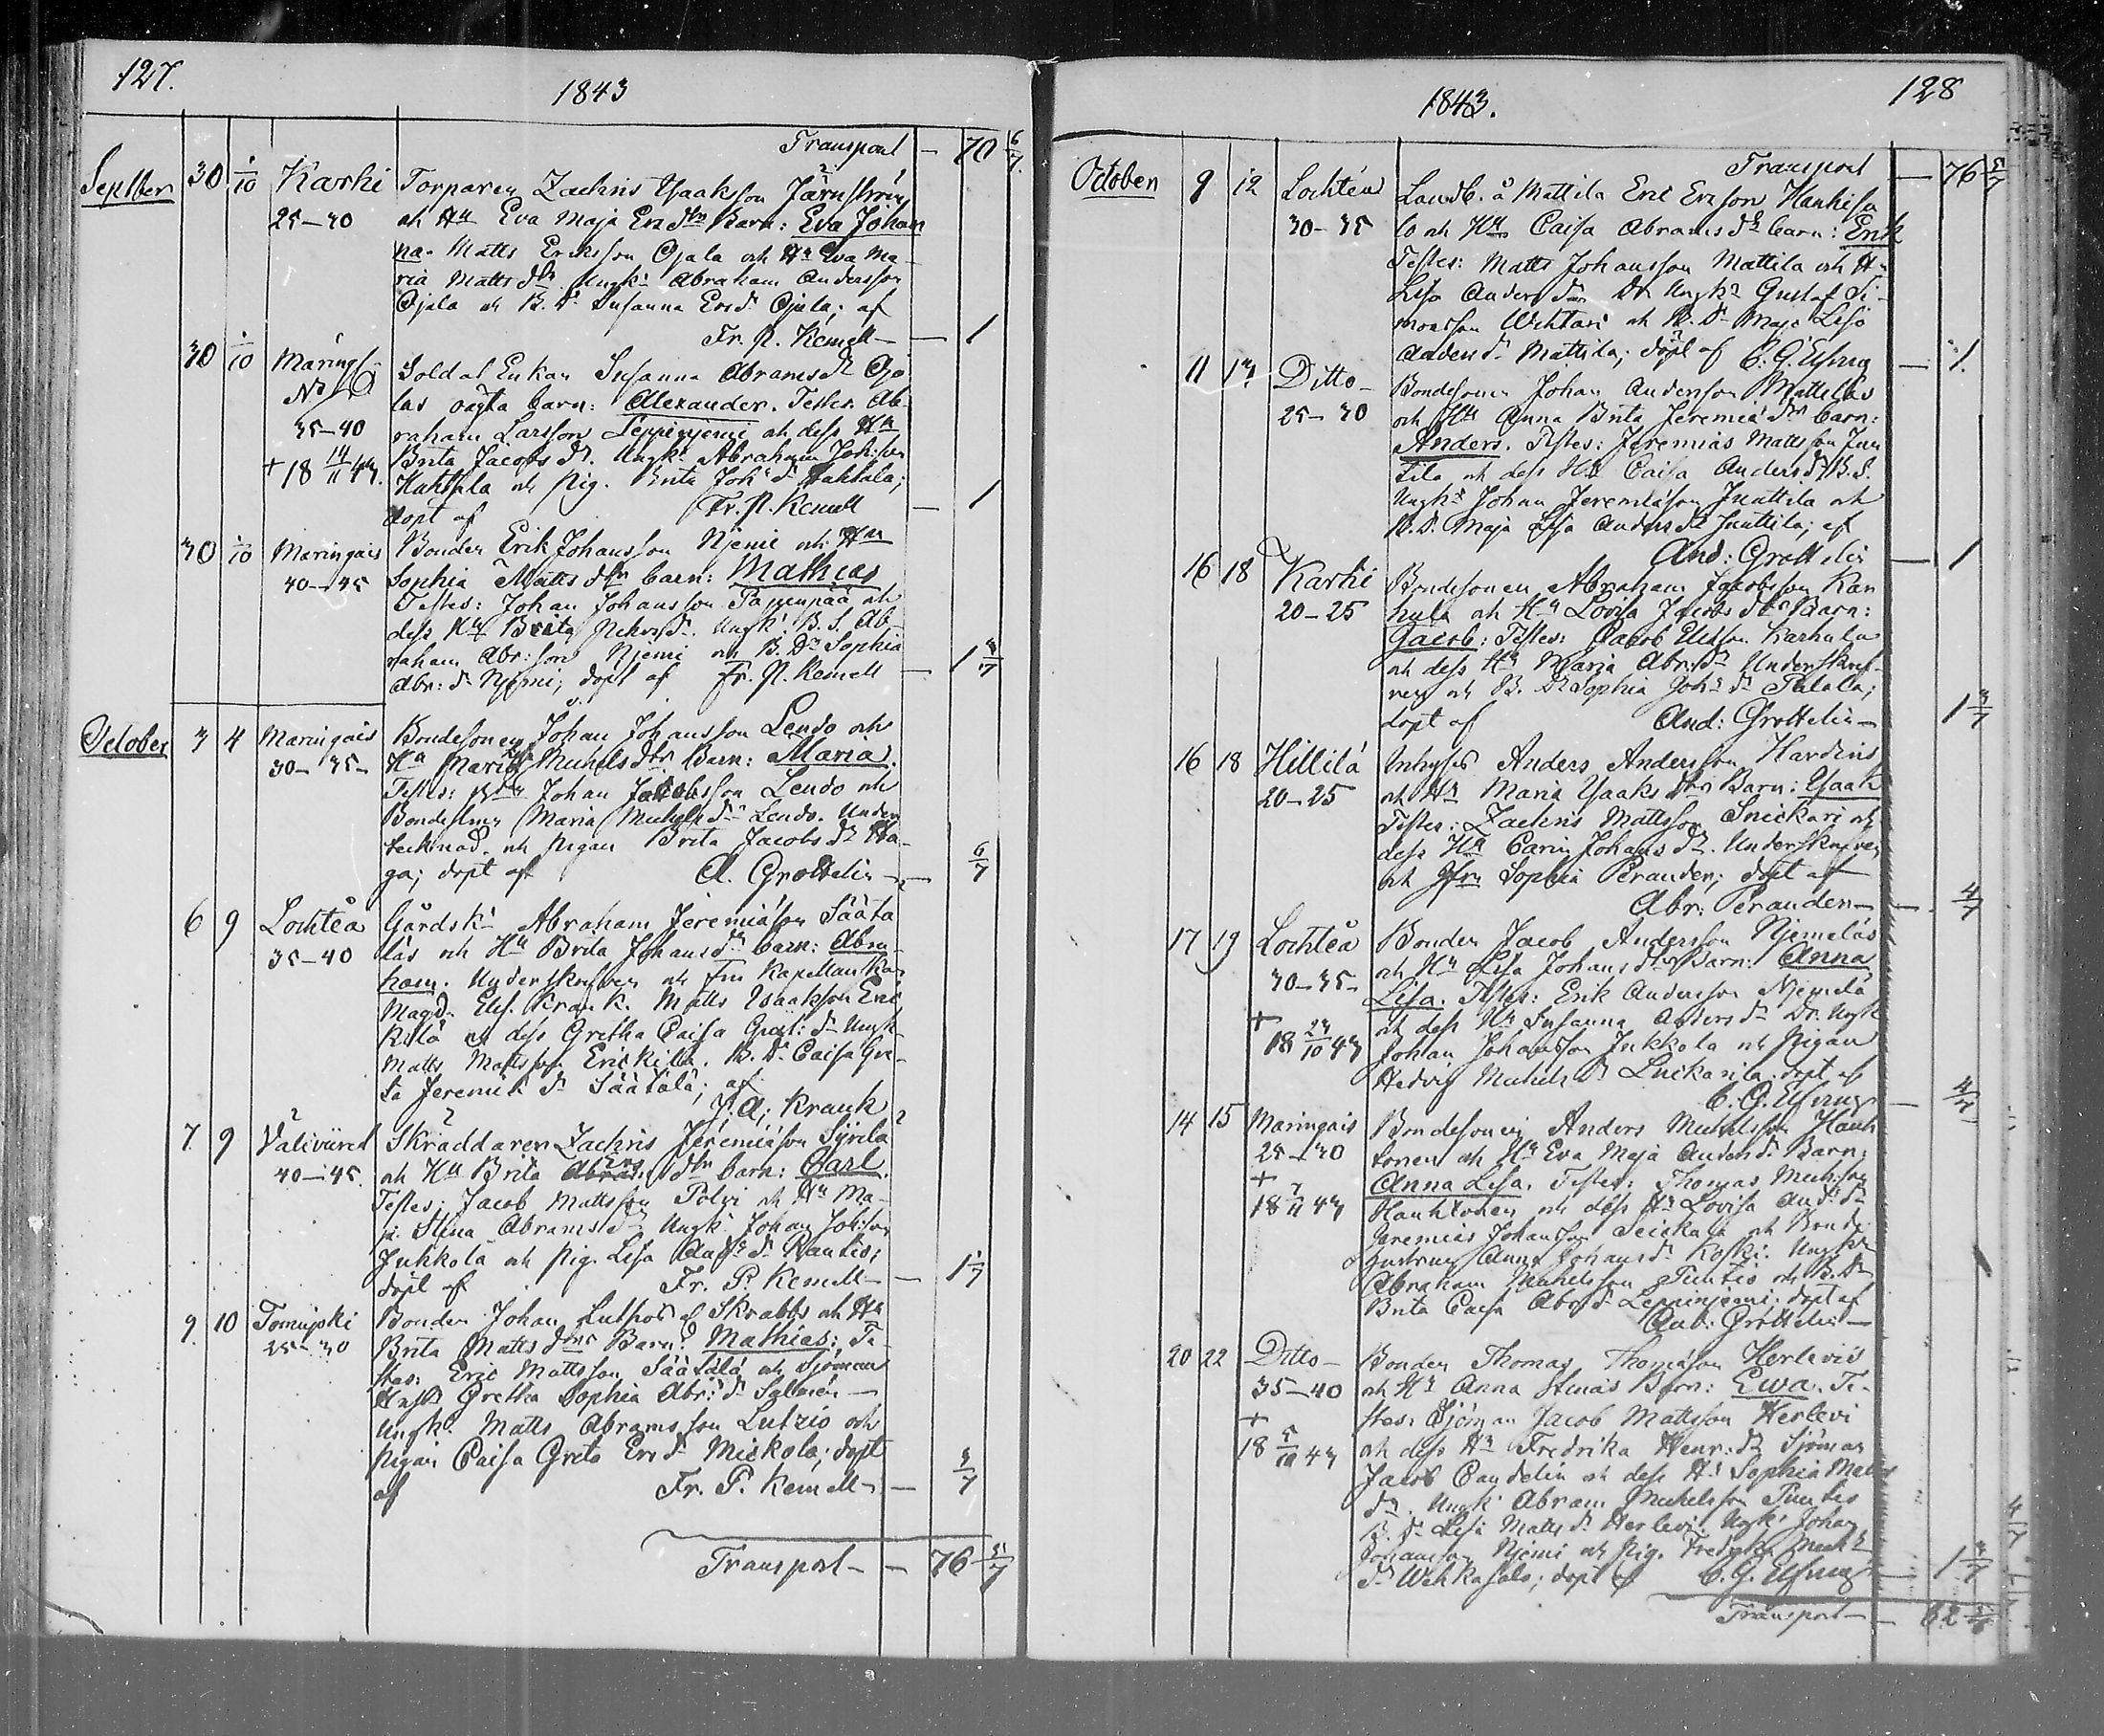 127.
1843
Transport — 70 6/7
Septber 30 1/10 Karhi Torparen Zachris Isaaksson Järnström
25–30 och Hu Eva Maja Ersdtrs Barn: Eva Johan
na. Matts Eriksson Ojala och Hu Eva Ma-
ria Mattsdtr. Ungk. Abraham Andersson
Ojala och B. Dr Susanna Ersdr Ojala; af
Fr. P. Kemell — 1
30 1/10 Maringais Soldat Enkan Susanna Abramsdr Ojo
No
35–40 las oägta barn: Alexander. Testes: Ab-
raham Larsson Leppinjemi och dess Hu
+ 18 14/11 43. Brita Jacobsdr. Ungk. Abraham Joh:son
Huhtala och Pig. Brita Johsdr Huhtala;
döpt af Fr. P. Kemell — 1
30 1/10 Maringais Bonden Erik Johansson Njemi och Hu
40–45 Sophia Mattsdtrs barn: Mathias
Testes: Johan Johansson Pajunpää och
dess Hu Brita dr. Ungk. B. S. Ab-
raham Abr:son Njemi och B. Dr Sophia
Abr:dr Njemi; döpt af Fr. P. Kemell — 1 3/7
October 3 4 Maringais Bondesonen Johan Johansson Lendo och
30–35– Hu Maria Michelsdtrs Barn: Maria.
Testes: Johan Jacobsson Lendo och
Bondehustru Maria Michelsdr Lendo. Under
tecknad och Pigan Brita Jacobsdr Ha-
ga; döpt af A. Gröttelin — 6/7
6 9 Lochteå Gårdsk. Abraham Jeremiason Säätä
35–40 läs och Hu Brita Johansdtrs barn: Abra-
ham. Underskrifven och Fru Kapellanskan
Magd. Elis. Krank. Matts Isaaksson Eric
kilä och dess Gretha Caisa Gust:dr Ungk
Matts Mattsson Erickilä. B. Dr Caisa Gre-
ta Jeremiædr Säätälä; af
J. A. Krank
7. 9 Välivürrd Skräddaren Zachris Jeremiason Syrila
40–45. och Hu Brita dtrs barn: Carl.
Testes: Jacob Mattsson Polvi och Hu Ma-
ja Stina Abramsdr Ungk. Johan Joh:son
Jukkola och Pig. Lisa Andsdr Rautio;
döpt af Fr. P. Kemell — 1 1/7
9. 10 Tomujoki Bonden Johan Skrabbs och Hu
25–30 Brita Mattsdtrs Barn: Mathias: Te-
stes: Eric Mattsson Säätälä och Sjöman
Hust. Gretha Sophia Abr:dr Salmén —
Ungk. Matts Abramsson Lutzio och
Pigan Caisa Greta Ersdr Mickola; döpt
af Fr. P. Kemell — 3/7
Transport — 76 5/7
1843.
128
Transport — 76 5/7
October 9 12 Lochteå Landb. å Mattila Eric Ersson Hanhisa
30–35 lo och Hus Caisa Abramsdrs barn: Erik
Testes: Matts Johansson Mattila och Hu
Lisa Andersdr Dr Ungk. Gustaf Si-
monsson Wihtari och B. Dr Maja Lisa
Andersdr Mattila; döpt af C. G. Elfving — 1.
11 13 Ditto– Bondesonen Johan Andersson Mattilas
25–30 och Hu Anna Brita Jeremiædtrs barn:
Anders. Testes: Jeremias Mattsson Juu
tila och dess Hu Caisa Andersdr B. S.
Ungk. Johan Jeremiason Juuttila och
B. D. Maja Lisa Andersdr Juuttila; af
And: Gröttelin — 1
16 18 Karhi Bondesonen Abraham Jacobsson Kar
20–25 hula och Hu Lovisa Jacobsdtrs Barn:
Jacob: Testes: Jacob Elisson Karhula
och dess Hu Maria Abr:dr Underskrif-
ven och B. Dr Sophia Johsdr Palola;
döpt af And: Gröttelin — 1 3/7
16 18 Hillilä Inhyses Anders Andersson Hardins
20–25 och Hu Maria Isaaksdtrs Barn: Isaak
Testes: Zachris Mattsson Snickari och
dess Hu Carin Johansdr. Underskrifven
och Jfru Sophia Peranden; döpt af
Abr: Peranden — 4/7
17 19 Lochteå Bonden Jacob Andersson Njemeläs
30–35– och Hu Lisa Johansdtrs Barn: Anna
Lisa. Testes: Erik Andersson Njemelä
+ 18 23/10 43 och dess Hu Susanna Andersdr Dr. Ungk
Johan Johansson Jukkola och Pigan
Hedvig Michelsdr Luckarila. döpt af
C. G. Elfving — 4/7
14 15 Maringais Bondesonen Anders Michelsson Hauh
25–30 tonen och Hu Eva Maja Andersdr Barn:
+ 18 7/11 43 Anna Lisa. Testes: Thomas Mich:son
Hauhtonen och dess Hu Lovisa Andsdr
Jeremias Johansson och Bonde
hustrun Anna Johansdr Koski. Ungk.
Abraham Michelsson Puutio och B. Dr
Brita Caisa Abrsdr Leppinjemi. döpt af
And: Gröttelin — 1
20 22 Ditto– Bonden Thomas Thomason Herlevis
35–40 och Hu Anna Stinas Barn: Ewa. Te-
+ 18 5/10 43 stes: Sjöman Jacob Mattsson Herlevi
och dess Hu Fredrika Henr:dr Sjöman
Jacob Candelin och dess Hu Sophia Matts
dr. Ungk. Abram Michelsson Puutio
B. Dr Lisa Mattsdr Herlevi Ungk. Johan
Johansson Njemi och Pig. Fredrika Mich
dr Wehkasalo; döpt af C. G. Elfving — 1 3/7
Transport — 82 5/7